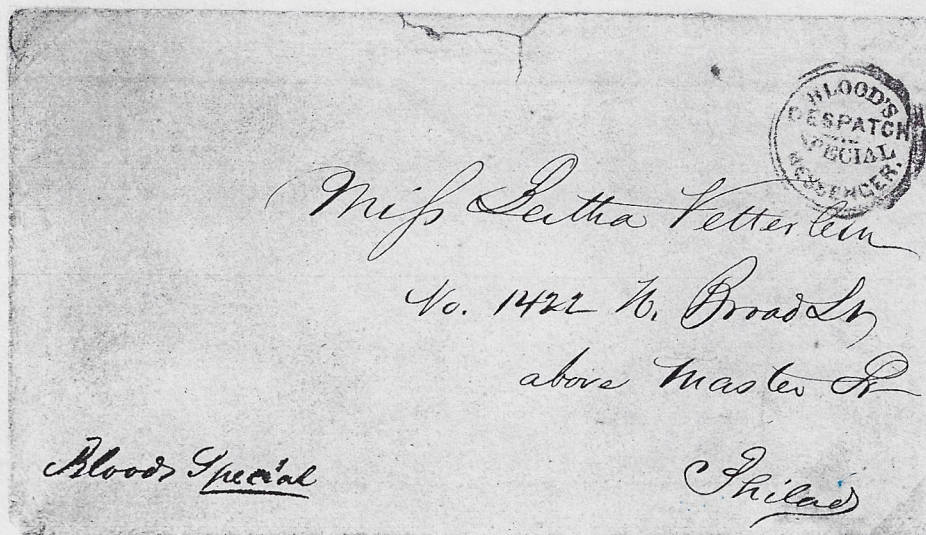 BLOOD'S
DESPATCH
SPECIAL
MESSENGER.
Miss Bertha Vetterlein
No. 1422 N. Broad St
above Master St
Bloods Special
Philad